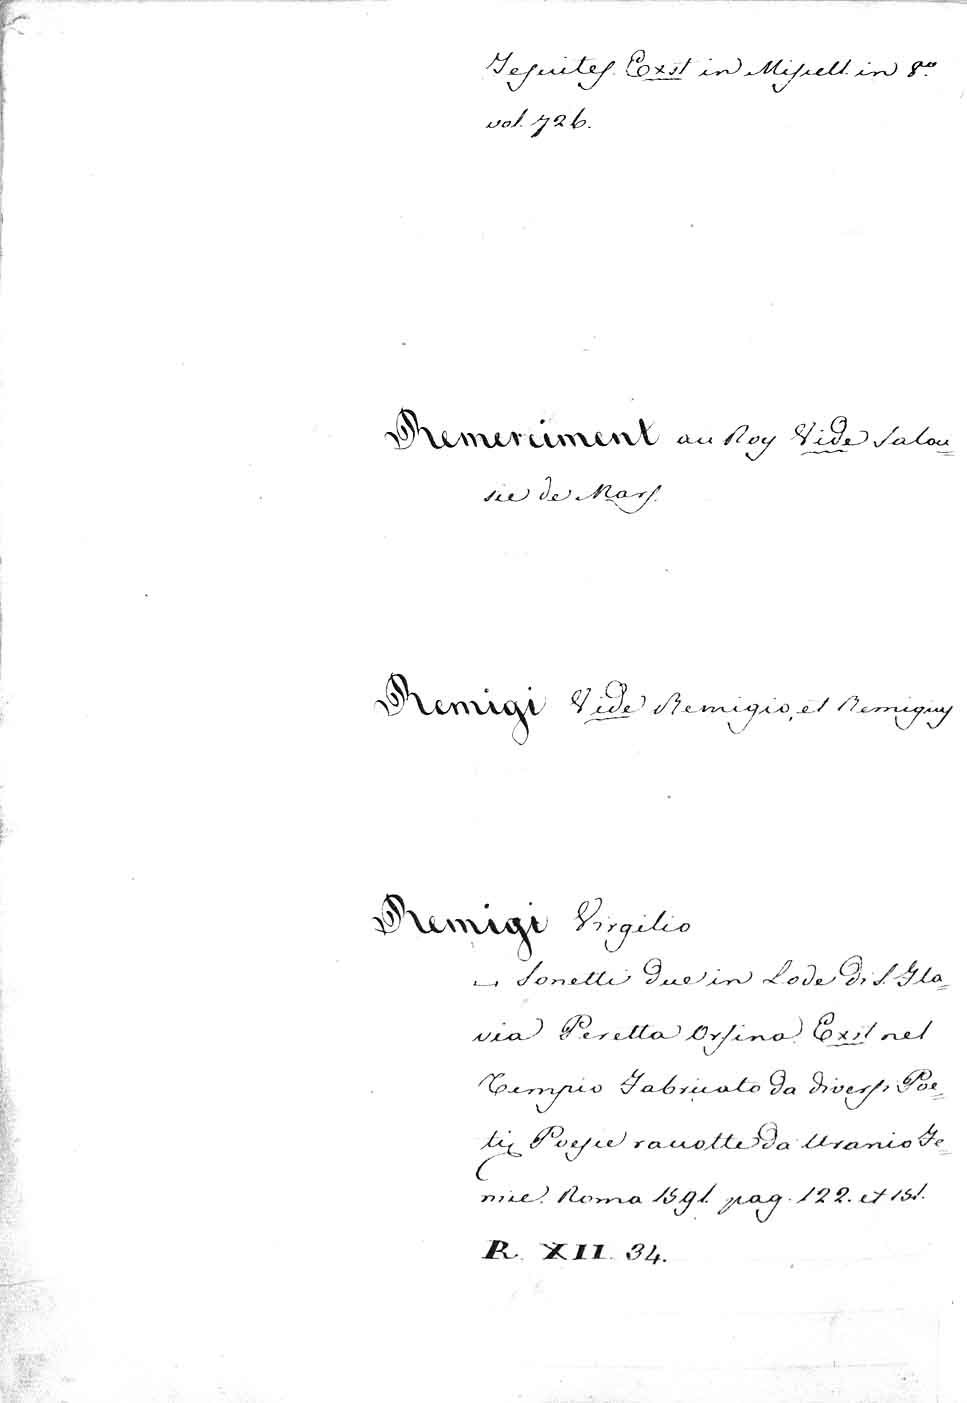 Jesuites. Exst in Miscell. in 8.º
vol. 726.
Remerciment au Roy Vide Jalou=
sie de Mars.
Remigi Vide Remigio, et Remiguy
Remigi Virgilio
Sonetti due in Lode di S. Fla=
via Peretta Orsina. Exst nel
Tempio Fabricato da diversi Poe=
ti Poesie racolte da Uranio Fe=
nice. Roma 1591. pag. 122. et 151.
R. XII. 34.